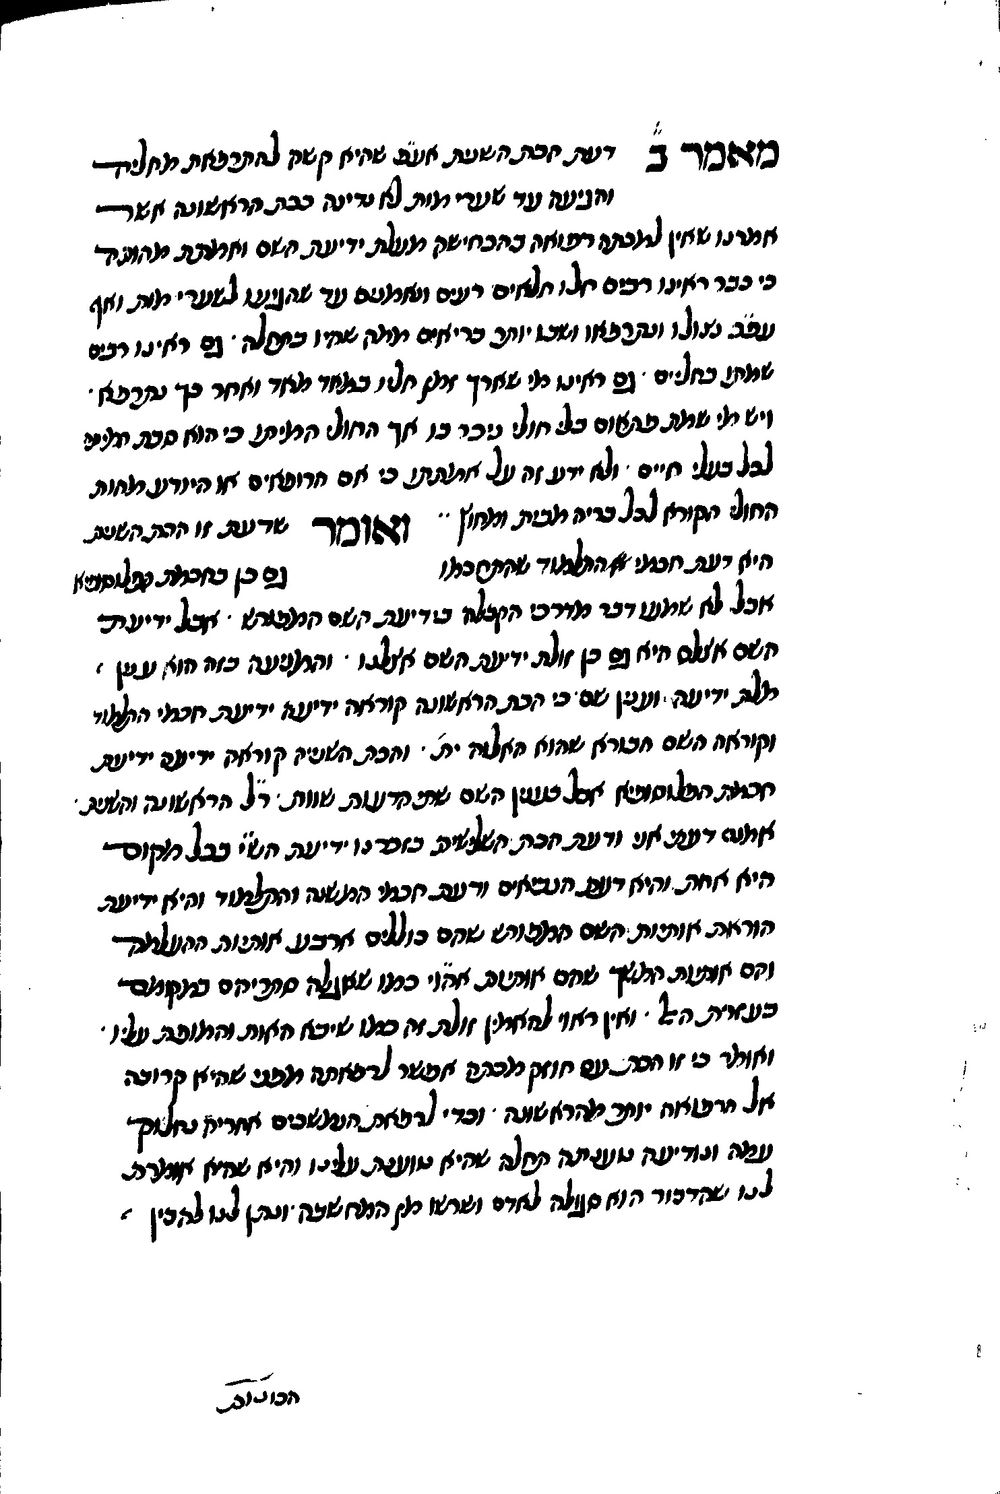 מאמר ב̈ דעת הכת השנית אע״פ שהיא קשה להתרפאת מחליה
והגיעה עד שערי מות לא נדינה ככת הראשונה אשר
אמרנו שאין למכתה רפואה בהכחישה מעלת ידיעת השם ואמתת מהותה
כי כבר ראינו רבים חלו חלאים רעים ונאמנים עד שהגיעו לשערי מות ואף
עפ״כ נצולו ונתרפאו ושבו יותר בריאים ממה שהיו בתחלה · גם ראינו רבים
שמתו בחליים · גם ראינו מי שארך זמן חליו במאד מאד ואחר כך נתרפא ·
ויש מי שמת פתאום בלי חולי ניכר בו אך החולי המיתו כי הוא סבת המיתה
לכל בעלי חיים · ולא ידע זה על אמתתו כי אם הרופאים או היודע מהות
החולי הקורא לכל בריה מבית ומחוץ ·· ואומר שדעת זו הכת השנית
היא דעת חכמי התלמוד שהתחכמו גם כן בחכמת הפילוסופיא
אבל לא שמעו דבר מדרכי הקבלה בידיעת השם המפורש · אבל ידיעת
השם אצלם היא גם כן זולת ידיעת השם אצלנו · והמניעה בזה הוא ענין
מלת ידיעה · וענין שם · כי הכת הראשונה קוראה ידיעה ידיעת חכמי התלמוד
וקוראה השם הבורא שהוא האלוה ית׳ · והכת השניה קוראה ידיעה ידיעת
חכמת הפילוסופיא אבל בענין השם שתי הדעות שוות · ר״ל הראשונה והשנית ·
אמנם דעתי אני ודעת הכת השלישית בזכרנו ידיעת הש״י בכל מקום
היא אחת והיא דעת הנביאים ודעת חכמי המשנה והתלמוד והיא ידיעת
הוראת אותיות השם המפורש שהם כוללים ארבע אותיות ההעלמה
והם אותיות המשך שהם אותיות אהו״י כמו שאגלה סתריהם במקומם
בעזרת האל · ואין ראוי להאמין זולת זה כמו שיבא האות והמופת עליו ·
ואומר כי זו הכת עם חוזק מכתה אפשר לרפאתה מפני שהיא קרובה
אל הרפואה יותר מהראשונה · וכדי לרפאת הנמשכים אחריה נחלוק
עמה ונודיעה טענתה תחלה שהיא טוענת עלינו והיא שהיא אומרת
לנו שהדבור הוא סגולה לאדם ושרשו מן המחשבה · ונתן לנו להבין
הכוונות